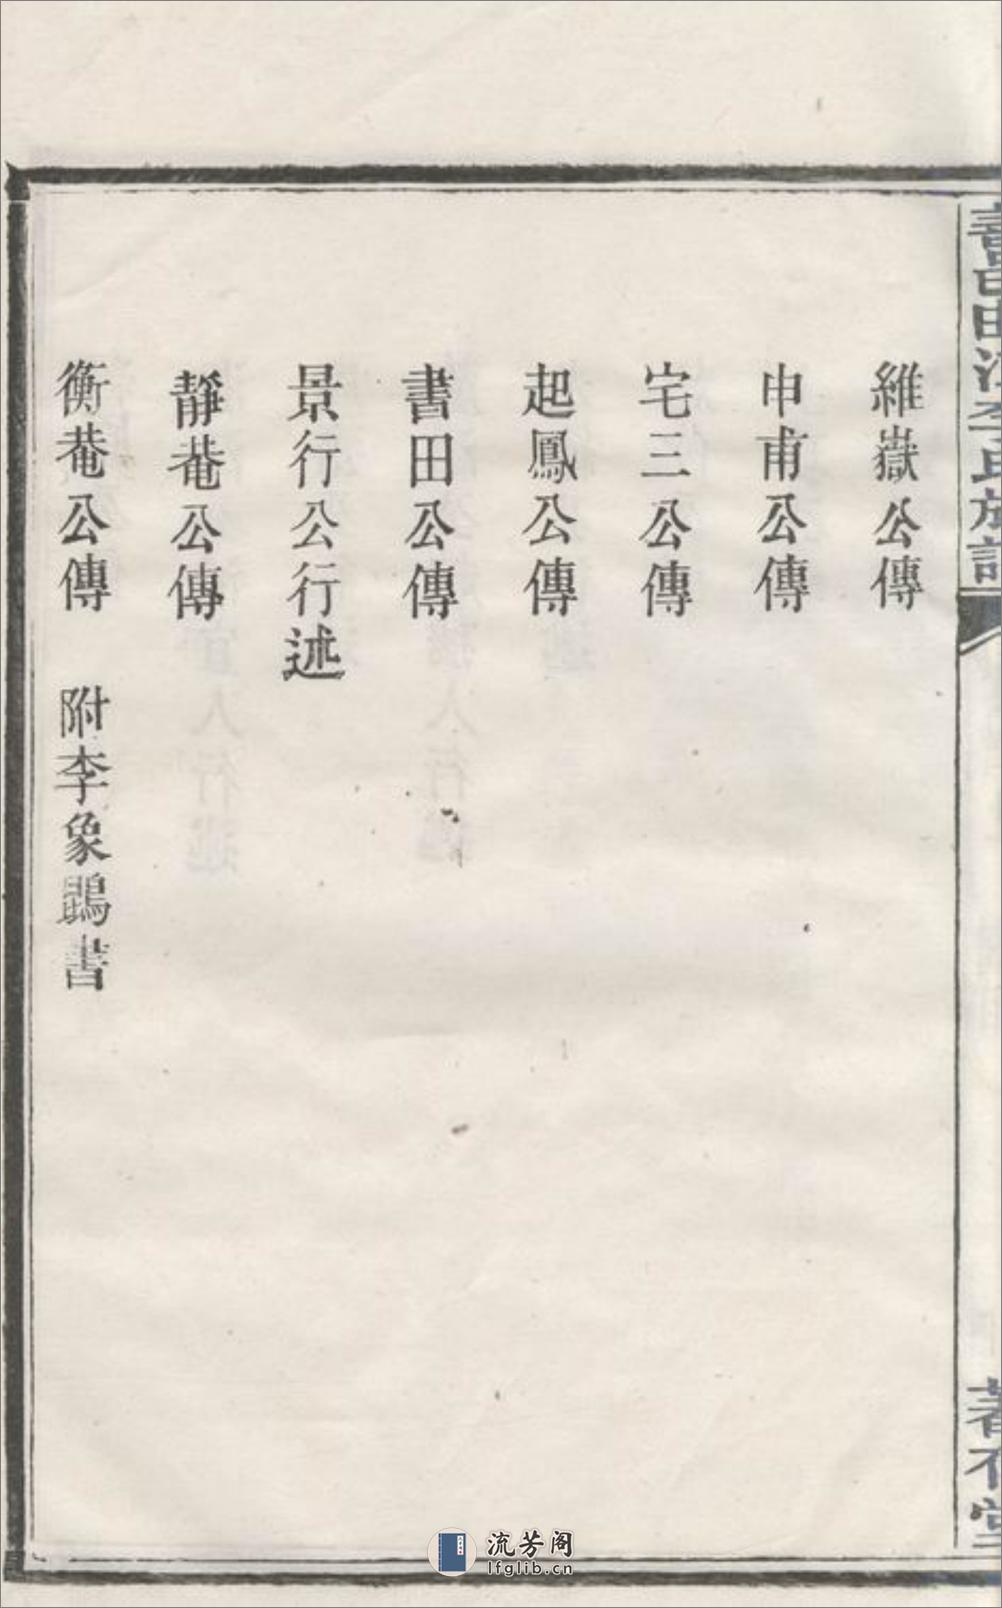 維嶽公傳
申甫公傳
宅三公傳
起鳳公傳
書田公傳
景行公行述
靜菴公傳
衡菴公傳 附李象鵾書
李氏族譜
堂
流芳阁
lfglib.cn